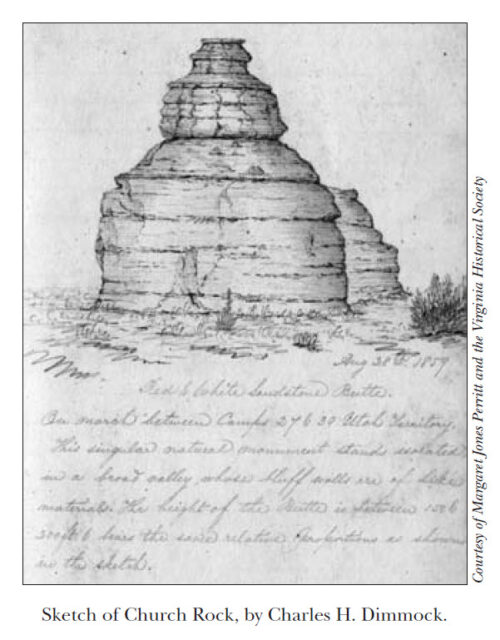 Aug 28th 1859
Red & White Sandstone Butte.
On march between Camps 27 & 29 Utah Territory.
This singular natural monument stands isolated
in a broad valley whose bluff walls are of like
materials. The height of the Butte is between 150 &
200ft & bears the same relative proportions as shown
in the sketch.
Courtesy of Margaret Jones Perritt and the Virginia Historical Society
Sketch of Church Rock, by Charles H. Dimmock.